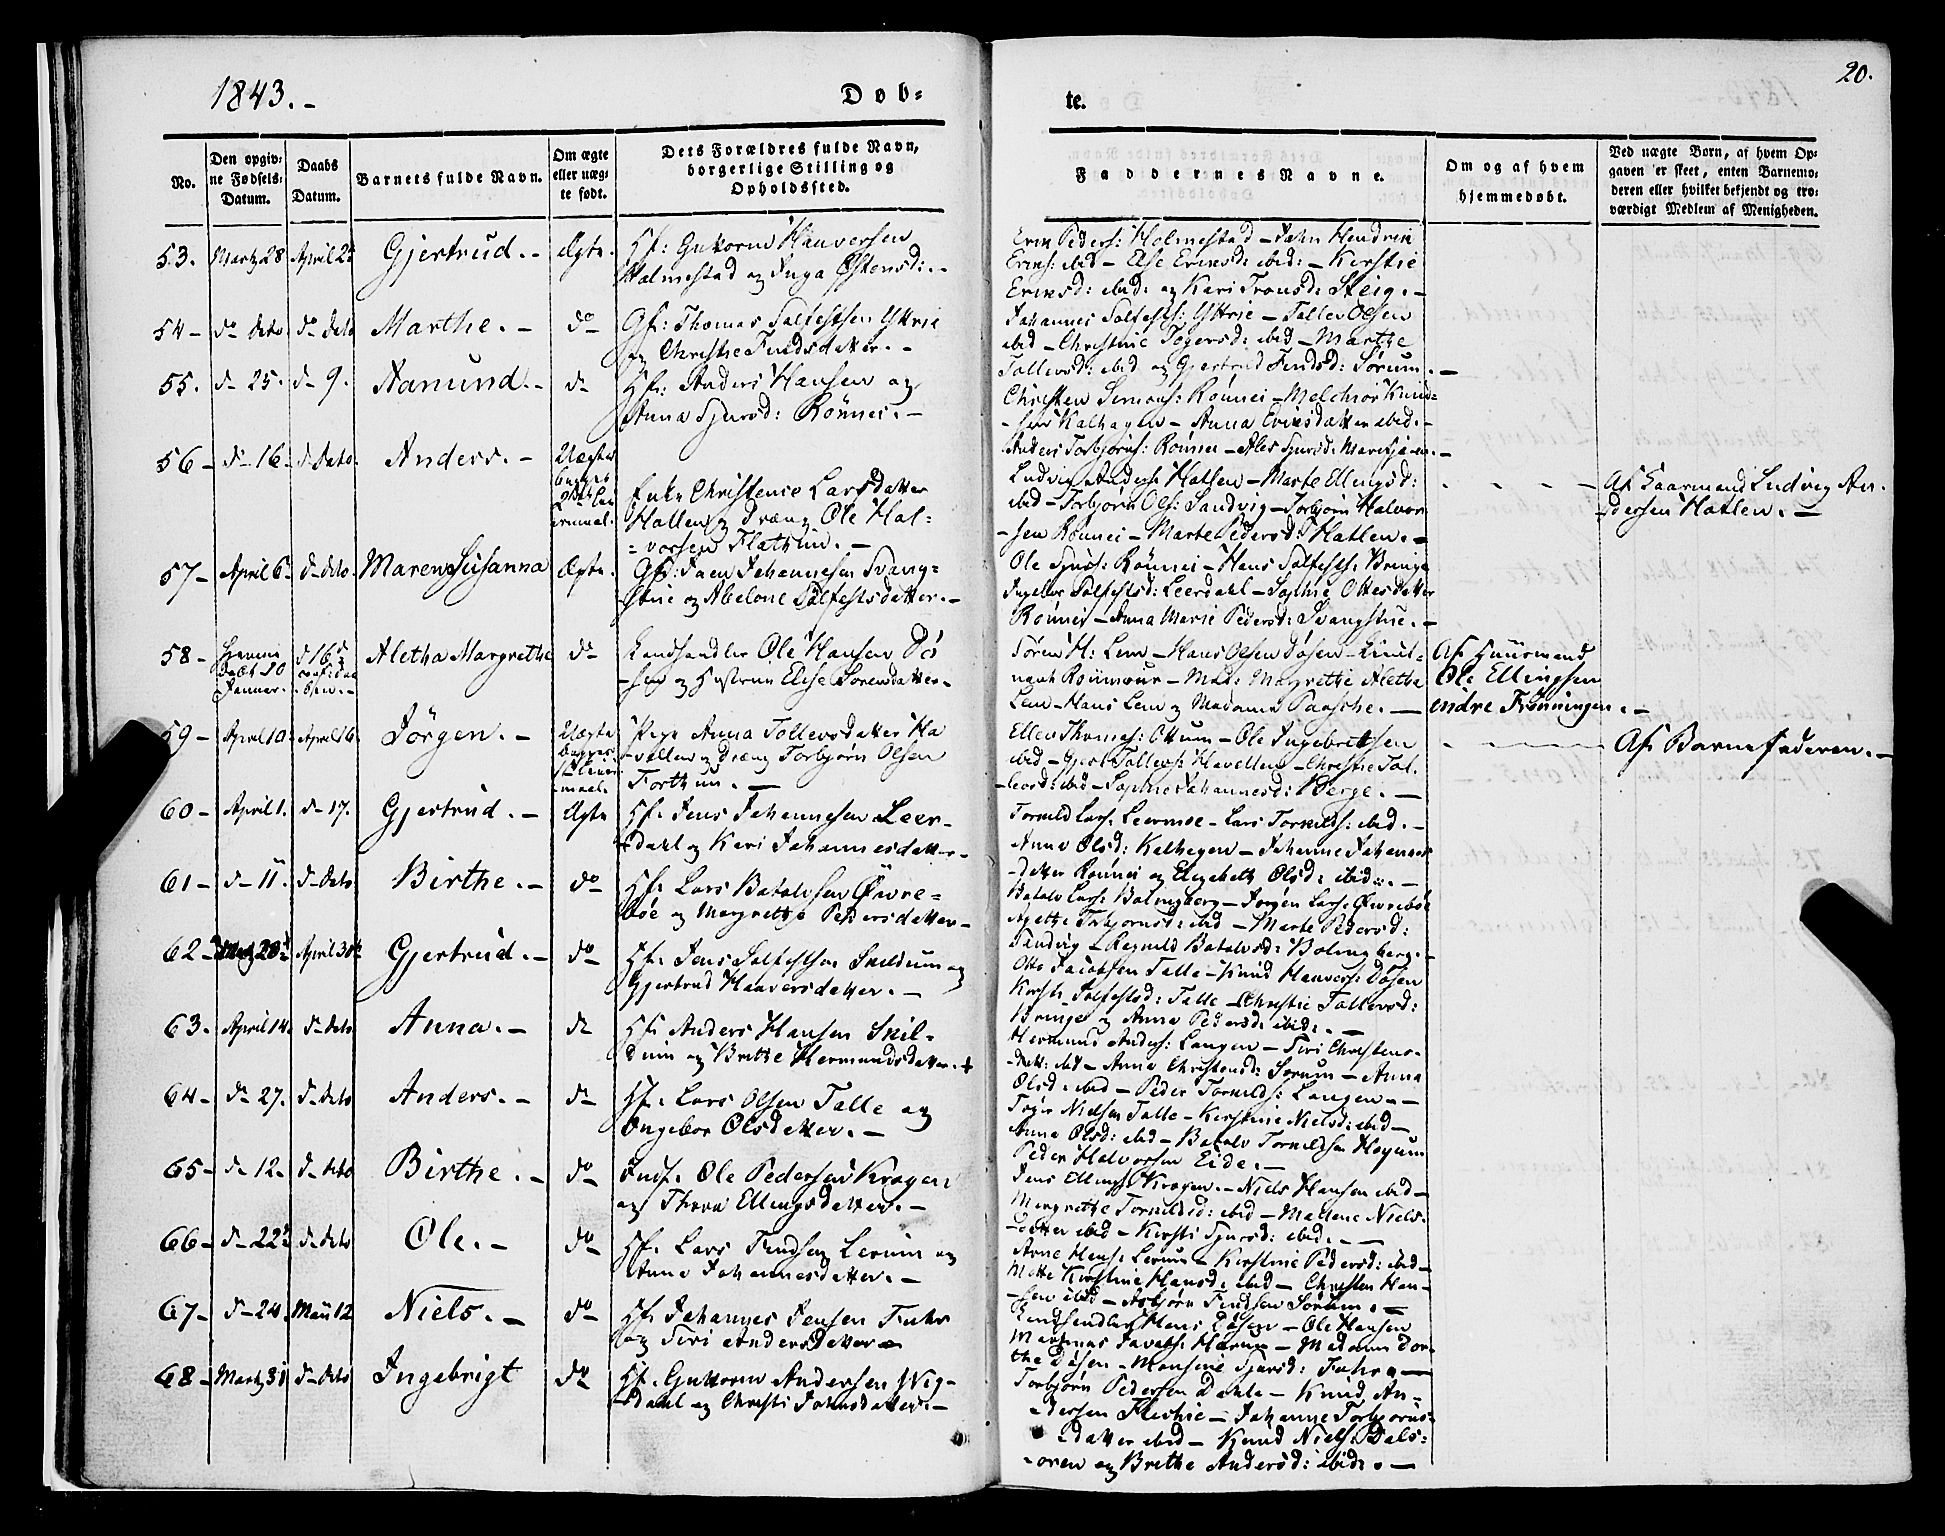 1843.-
Døb-
te.
20.
No.
Den opgiv-
ne Fødsels-
Datum.
Daabs
Datum.
Barnets fulde Navn.
Om ægte
eller uæg-
te født.
Dets Forældres fulde Navn,
borgerlige Stilling og
Opholdssted.
Faddernes Navne.
Om og af hvem
hjemmedøbt.
Ved uægte Børn, af hvem Op-
gaven er skeet, enten Barnemo-
deren eller hvilket bekjendt og tro-
værdigt Medlem af Menigheden.
53. Martz 28 April 2d Gjertrud.- Ægte.
Gf: Guttorm Haaversen
Holmestad og Inga Østensd:-
Erik Peders: Holmestad - John Hendrik
Eriks: ibid - Else Eriksd: ibid: - Kirstie
Eriksd: ibid: og Kari Tronsd: Steig.-
54- do dito. do dito Marthe.- do
Gf: Thomas Salfestsen Yttrie
og Christie Findsdatter.-
Johannes Salfests: Yttrie - Tollev Olsen
ibid - Christine Togersd: ibid - Marthe
Tollevsd: ibid og Gjertrud Findsd: Sørum.-
55. d- 25. d- 9. Aanund.- d-
Gf: Anders Hansen og
Anna Sjursd: Rønnei.-
Christen Simons: Rønnei - Melchior Knud-
-sen Kalhagen - Anna Eriksdatter ibid.-
Anders Torbjørns: Rønnei - Ales Sjursd:
56- d- 16. d- dito. Anders.- Uægte
Enke Christense Larsdatter
Hatlen og Dreng Ole Hal-
-vorsen Flathun.-
Ludvig Anders: Hatlen - Marte Ellingsd:
ibid - Torbjørn Ols: Sandvig - Torbjørn Halvor-
-sen Rønnei - Marte Pedersd: Hatlen.-
Af Gaarmand Ludvig An-
-dersen Hatlen.-
57- April 6- d- dito. Maren Susanna Ægte.
Gf: Johannesen Svang-
-stue og Abelone Salfestsdatter.-
Ole Sjurs: Rønnei - Hans Salfests: Bringe
Ingebor Salfestsd: Leerdahl - Sophie Ottesdatter
Rønnei - Anna Marie Pedersd: Svangstue.-
58- 10
Januar. d 16d
Aletha Margrethe d-
Landhandler Ole Hansen Dø-
-sen og Hustrue Elise Sørensdatter-
Søren H: Lem - Hans Olsen Døsen - Lieut-
nant - Mad: Margrethe Aletha
Lem - Hans Lem og Madame Paasche.-
Af Huusmand
Ole Ellingsen
indre Frønningen.-
59- April 10. April 16. Jörgen.- Uægte
Pige Anna Tollevsdatter Ha-
-vellen og Dreng Torbjørn Olsen
Forthun.-
Ellen Thomes: Ottum - Ole Ingebretsen
ibid - Tollevs: Havellen - Christie Tol-
-levsd: ibid - Sophie Johannesd: Berge.-
Af Barnefaderen.-
60- April 1. d- 17. Gjertrud.- Ægte
Gf. Jens Johannesen Leer-
-dahl og Kari Johannesdatter-
Tormild Lars: Leermoe - Lars Tormilds: ibid.-
Anna Olsd: Kalhagen - Johanne Johannes-
-datter Rønnei og Elizabeth Olsd: ibid:.-
61- d- 11. d- dito Birthe.- do
Gf. Lars Batolvsen Øvre-
bøe og Margrethe Pedersdatter-
Batolv Lars: Bolingberg - Jørgen Lars: Øvrebøe
Agethe Torbjornsd: ibid - Marte Pedersd:
Sandvig - Ragnild Batolvsd: Bolingberg.-
62- April 30te Gjertrud.- do
Gf. Jens Salfestsen Skildum og
Gjertrud Haaversdatter.-
Otte Jacobsen Talle - Knud Haavers: Døsen
Kirsti Salfestsd: Talle - Christie Tollevsd:
Bringe og Anna Pedersd: ibid:.-
63. April 14. d- dito Anna.- d-
Gf: Anders Hansen Skil-
dum og Britte Hermundsdatter.+
Hermund Anders: Langen - Siri Christens-
-datt: ibid - Anna Christensd: Sørum - Anna
Olsd: ibid - Peder Tormilds: Langen.-
64- d- 27. d- dito Anders.- d-
Gf. Lars Olsen Talle og
Ingebor Olsdatter.-
Toger Nielsen Talle - Kirstine Nielsd: ibid-
Anna Olsd: ibid - Batolv Tormildsen Høyum
Peder Halvorsen Eide.-
65- d- 12. d- dito Birthe.- do
Ole Pedersen Kragen
og Thora Ellingsdatter.-
Jens Ellings: Kragen.- Niels Hansen ibid-
Margrethe Tormildsd: ibid - Malene Niels-
-datter ibid - Kirsti Sjursd: ibid.-
66- d- 22d d- dito Ole.- do
Gf. Lars Findsen Lerum og
Anna Johannesdatter.-
Arne Hans: Lerum - Kirstine Pedersd: ibid-
Mette Kirstine Hansd: ibid - Christen Han-
-sen ibid - Asbjørn Findsen Sørum.-
67- d- 24. Maii 12 Niels.- do
Gf. Johannes Jensen Fuhr
og Siri Andersdatter-
Landhandler Hans Døsen - Ole Hansen
Martinus Jacobs: Harun - Madame Dor-
the Døsen - Monsine Sjursd: Fuhr.-
68- Martz 31 d- dito Ingebrigt do
Gf. Guttorm Andersen Wig-
-dahl og Christi Johnsdatter.-
Torbjørn Pedersen Dahle - Knud An-
-dersen Fleskie - Johanne Torbjørns-
-datter ibid - Knud Niels: Dals-
-øren og Brithe Andersd: ibid:.-